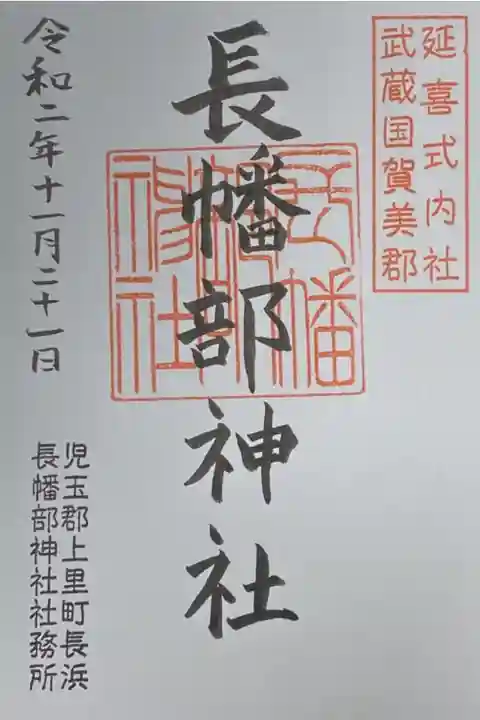 延喜式内社
武蔵国賀美郡
長幡部神社
長幡部神社
令和二年十一月二十一日
児玉郡上里町長浜
長幡部神社社務所